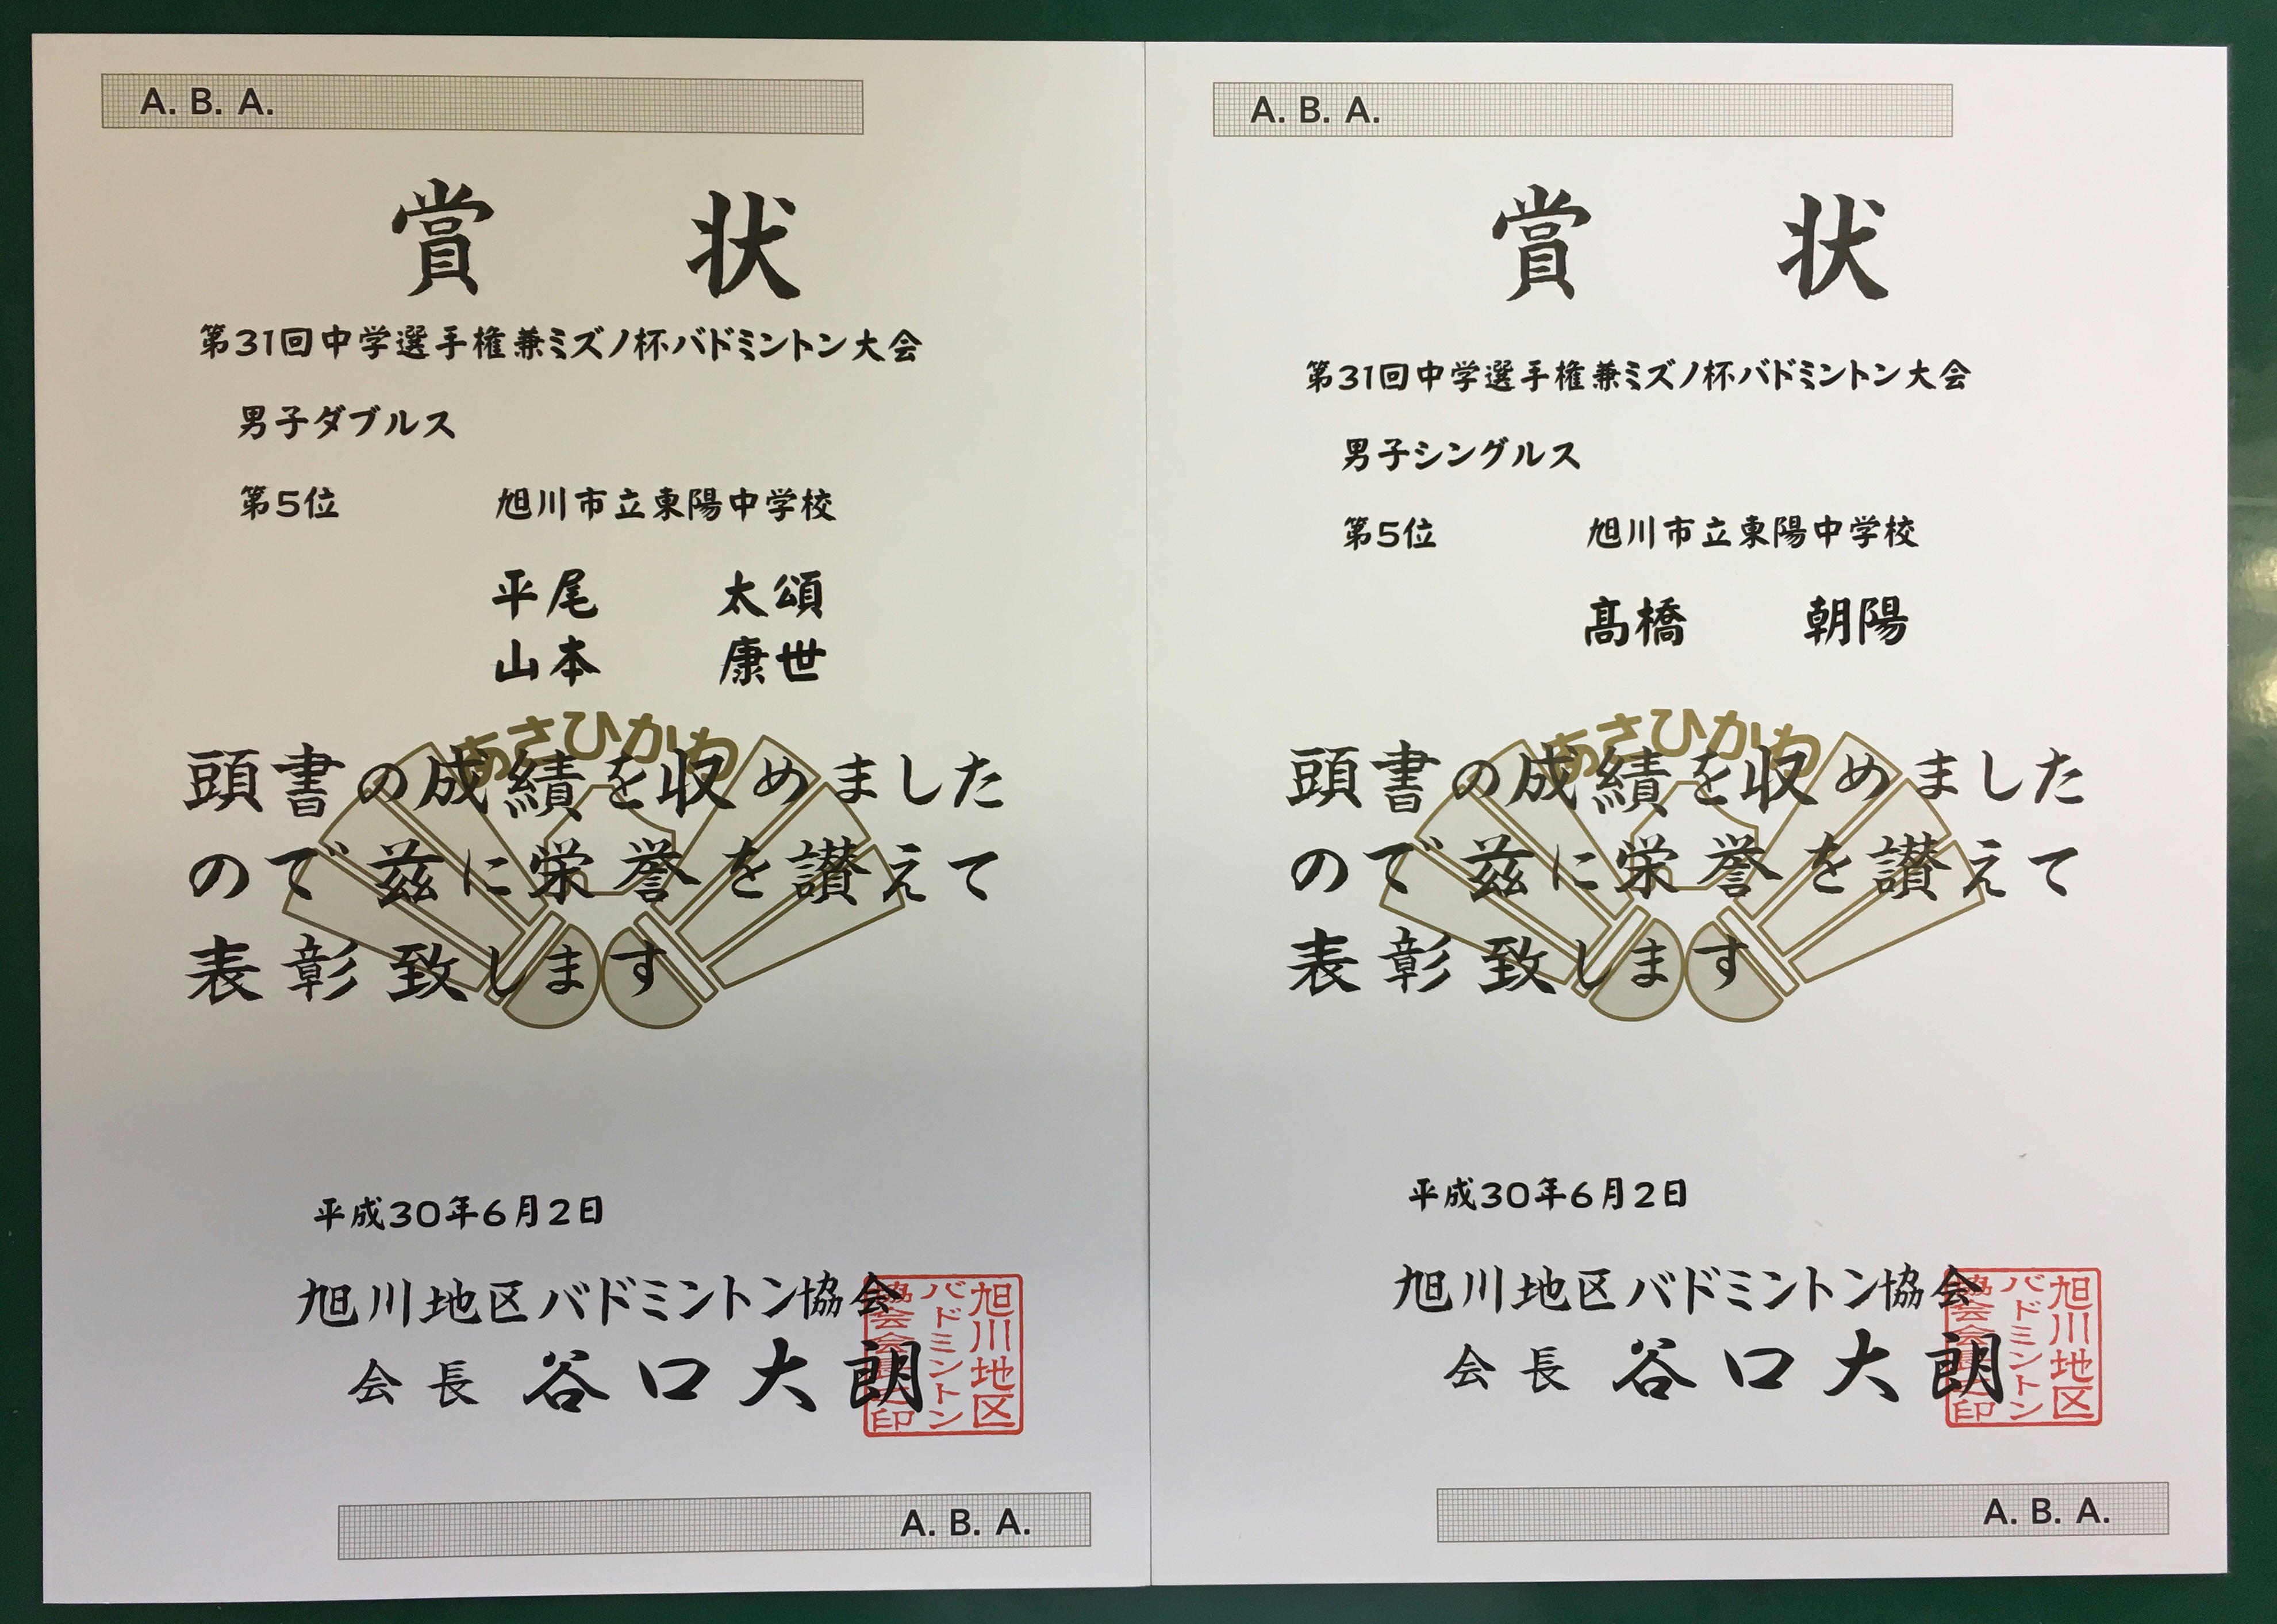 A. B. A.
賞 状
第31回中学選手権兼ミズノ杯バドミントン大会
男子ダブルス
第5位 旭川市立東陽中学校
平尾 太頌
山本 康世
あさひかわ
頭書の成績を収めました
ので茲に栄誉を讃えて
表彰致します
平成30年6月2日
旭川地区バドミントン協会
会長 谷口大朗
旭川地区
バドミントン
協会会長之印
A. B. A.
A. B. A.
賞 状
第31回中学選手権兼ミズノ杯バドミントン大会
男子シングルス
第5位 旭川市立東陽中学校
髙橋 朝陽
あさひかわ
頭書の成績を収めました
ので茲に栄誉を讃えて
表彰致します
平成30年6月2日
旭川地区バドミントン協会
会長 谷口大朗
旭川地区
バドミントン
協会会長之印
A. B. A.